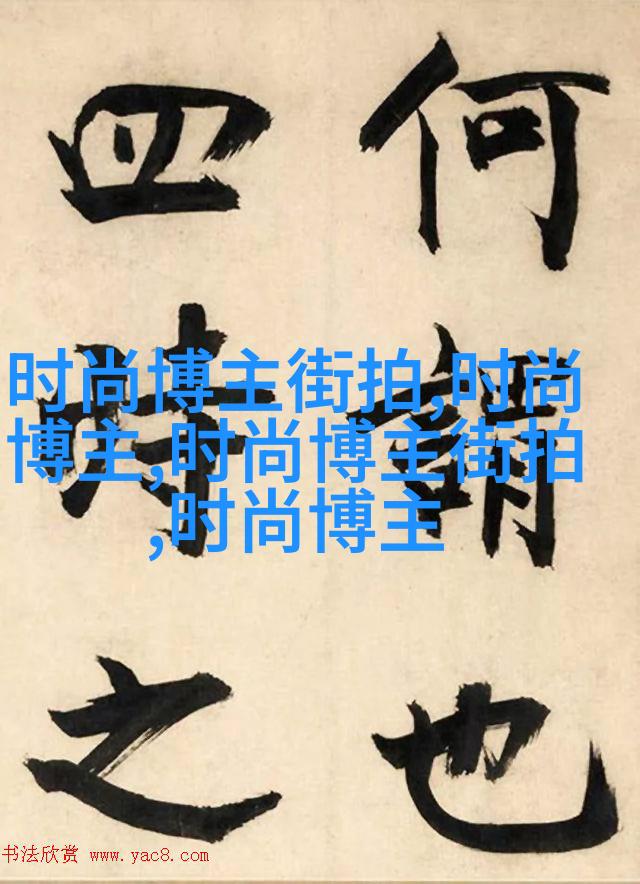 何謂也
四時之
时尚博主街拍,时尚
博主,时尚博主街拍
,时尚博主
书法欣赏 www.yac8.com